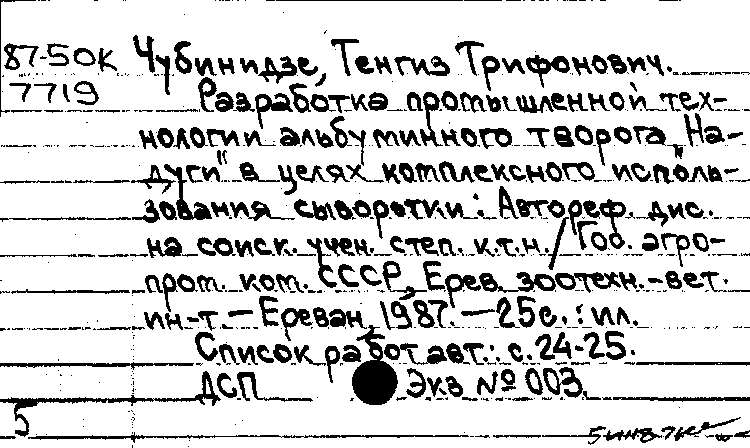 87-50К Чубинидзе, Тенгиз Трифонович.
7719 Разработка промышленной тех-
нологии альбуминного творога „На-
дуги" в целях комплексного исполь-
зования сыворотки: Автореф. дис.
на соиск. учен. степ. к.т.н. / Гос. агро-
пром. ком. СССР, Ерев. зоотехн.-вет.
ин-т. — Ереван, 1987. — 25с.: ил.
Список работ авт.: с. 24-25.
ДСП Экз № 003.
5